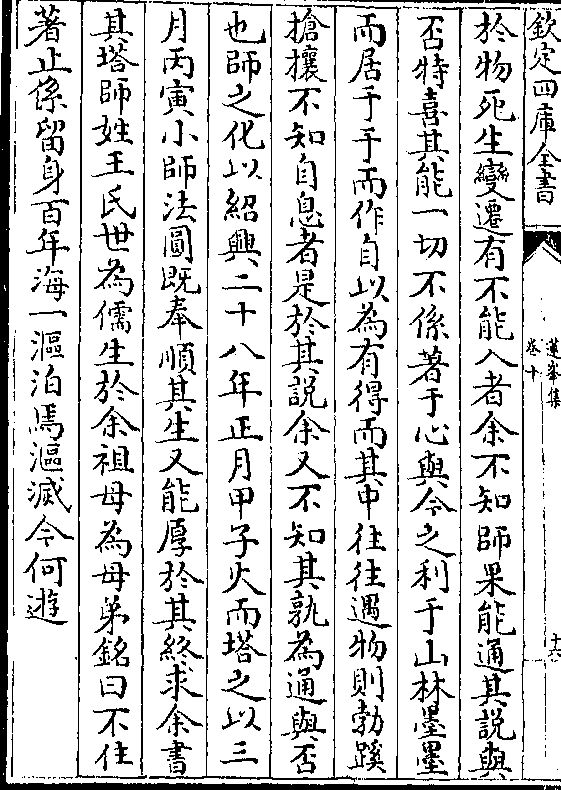 欽定四庫全書
蓮峯集
卷十
十六
於物死生變遷有不能入者余不知師果能通其說與
否特喜其能一切不係著于心與今之利于山林墨墨
而居于于而作自以為有得而其中往往遇物則勃蹊
搶攘不知自息者是於其說余又不知其孰為通與否
也師之化以紹興二十八年正月甲子火而塔之以三
月丙寅小師法圓既奉順其生又能厚於其終求余書
其塔師姓王氏世為儒生於余祖母為母弟銘曰不住
著止係留身百年海一漚泊焉漚滅今何遊